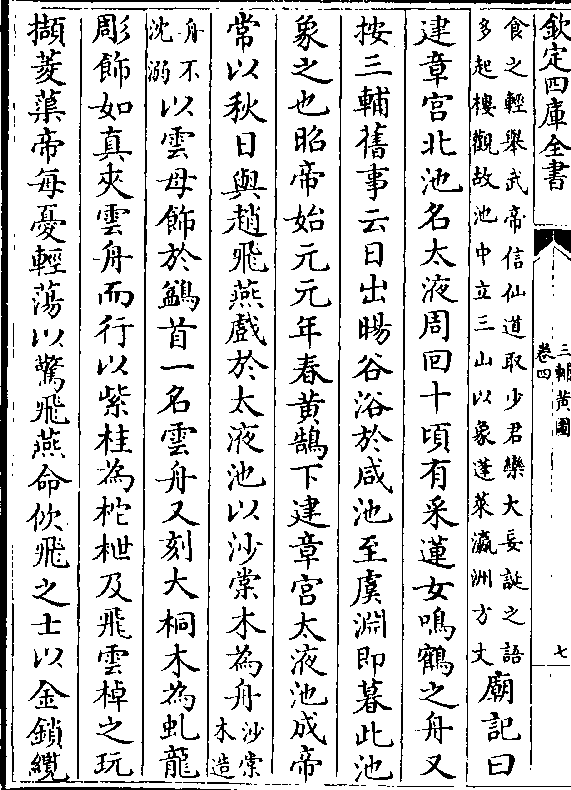 欽定四庫全書
三輔黃圖
卷四
七
食之輕舉武帝信仙道取少君欒大妄誕之語
多起樓觀故池中立三山以象蓬萊瀛洲方丈
廟記曰
建章宮北池名太液周回十頃有采蓮女鳴鶴之舟又
按三輔舊事云日出暘谷浴於咸池至虞淵即暮此池
象之也昭帝始元元年春黃鵠下建章宮太液池成帝
常以秋日與趙飛燕戲於太液池以沙棠木為舟
沙棠
木造
舟不
沈溺
以雲母飾於鷁首一名雲舟又刻大桐木為虬龍
彫飾如真夾雲舟而行以紫桂為柁枻及飛雲棹之玩
擷菱蕖帝每憂輕蕩以驚飛燕命佽飛之士以金鎖纜